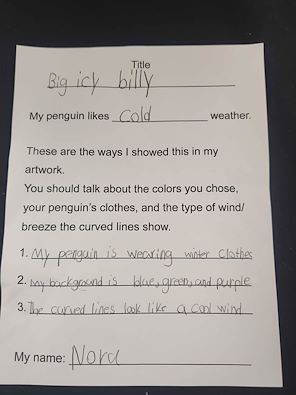 Title
Big icy billy
My penguin likes cold weather.
These are the ways I showed this in my
artwork.
You should talk about the colors you chose,
your penguin's clothes, and the type of wind/
breeze the curved lines show.
1. My penguin is wearing winter clothes
2. My background is blue, green, and purple
3. The curved lines look like a cool wind
My name: Nora